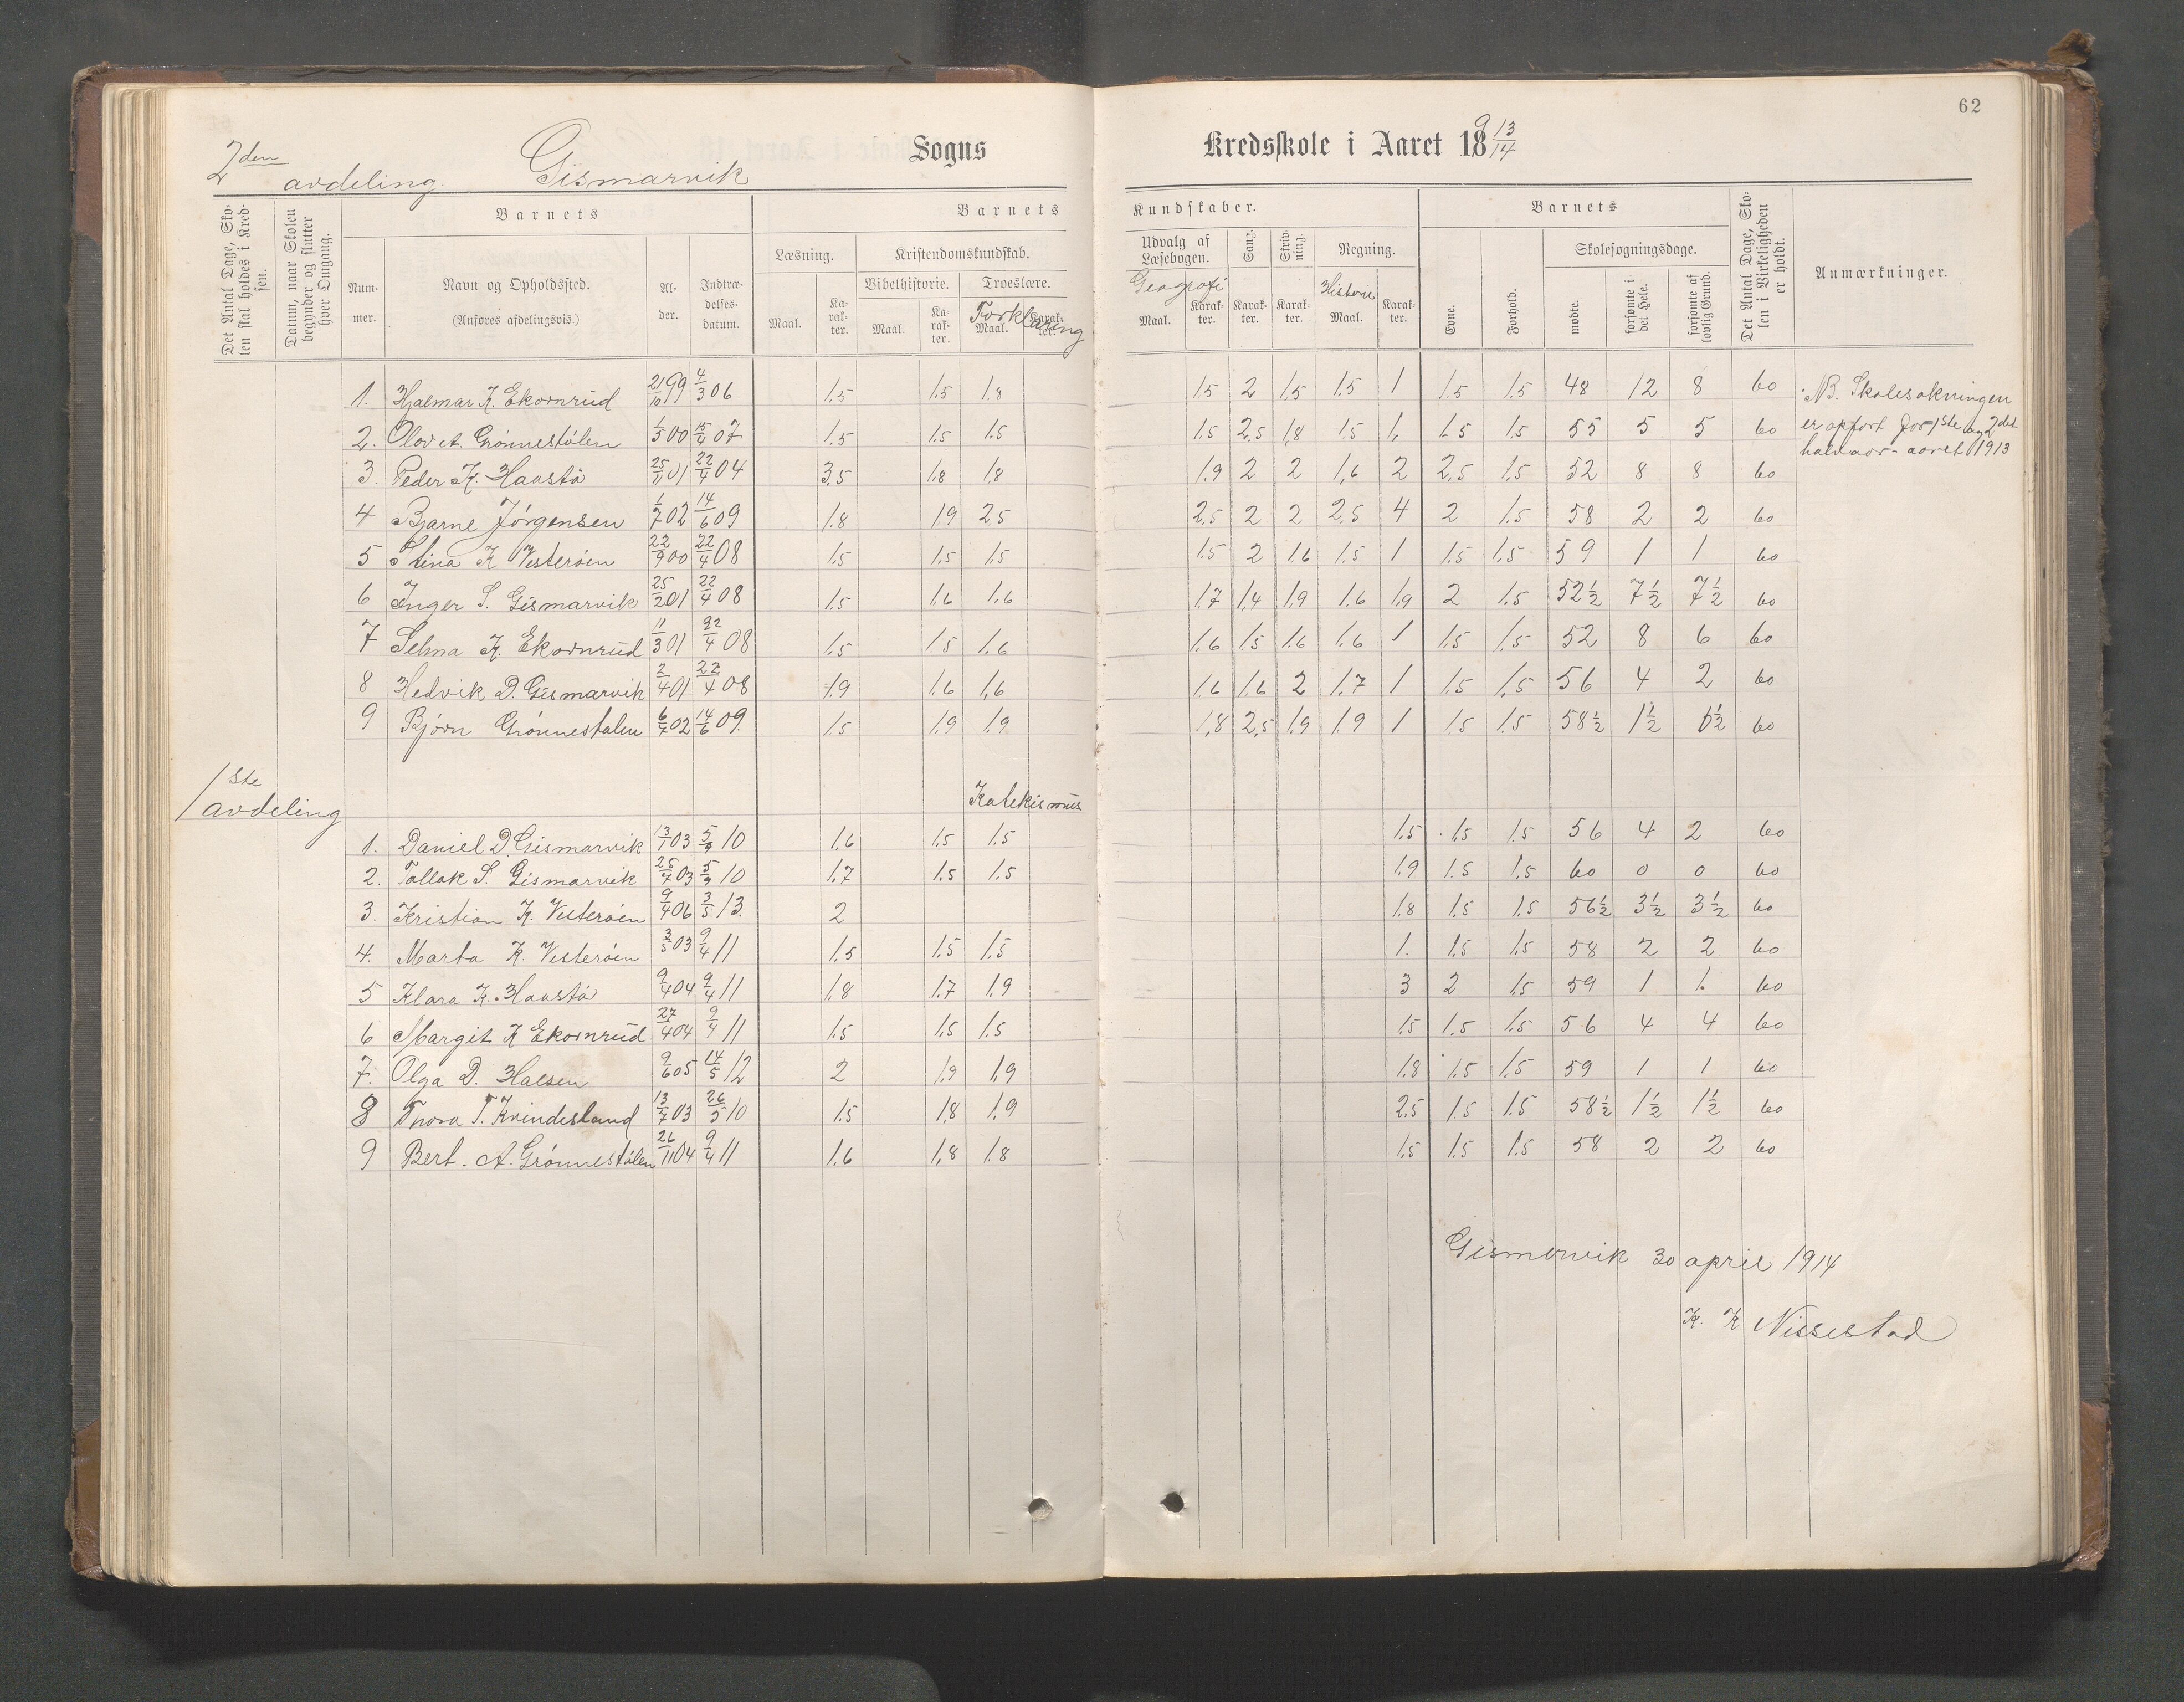 62
2den avdeling. Gismarvik Sogns Kredsskole i Aaret 1913/14
Det Antal Dage, Skolen skal holdes i Kredsen.
Datum, naar Skolen begynder og slutter hver Omgang.
Barnets
Nummer.
Navn og Opholdssted.
(Anføres afdelingsvis.)
Alder.
Indtrædelsesdatum.
Barnets Kundskaber.
Læsning. Maal. Karakter.
Kristendomskundskab.
Bibelhistorie. Maal. Karakter.
Troeslære. Forklaring Maal. Karakter.
Udvalg af Læsebogen. Geografi Maal. Karakter.
Sang. Karakter.
Skrivning. Karakter.
Regning. Historie Maal. Karakter.
Barnets
Evne.
Forhold.
Skolesøgningsdage.
mødte.
forsømte i det Hele.
forsømte af lovlig Grund.
Det Antal Dage, Skolen i Virkeligheden er holdt.
Anmærkninger.
1. Hjalmar K. Ekornrud 21/10 99 4/3 06 1.5 1.5 1.8 1.5 2 1.5 1.5 1 1.5 1.5 48 12 8 60
2. Olov A. Grønnestølen 1/5 00 15/4 07 1.5 1.5 1.5 1.5 2.5 1.8 1.5 1. 1.5 1.5 55 5 5 60
3. Peder K. Haastø 25/11 01 22/4 04 3.5 1.8 1.8 1.9 2 2 1,6 2 2.5 1.5 52 8 8 60
4 Bjarne Jørgensen 1/7 02 14/6 09 1.8 1.9 2.5 2.5 2 2 2.5 4 2 1.5 58 2 2 60
5 Stina K Vesterøen 22/9 00 22/4 08 1.5 1.5 1.5 1.5 2 1.6 1.5 1 1.5 1.5 59 1 1 60
6 Inger S. Gismarvik 25/2 01 22/4 08 1.5 1.6 1.6 1.7 1.4 1.9 1.6 1.9 2 1.5 52½ 7½ 7½ 60
7 Selma K. Ekornrud 11/3 01 22/4 08 1.5 1.5 1.6 1.6 1.5 1.6 1.6 1 1.5 1.5 52 8 6 60
8 Hedvik D. Gismarvik 2/4 01 22/4 08 1.9 1.6 1.6 1.6 1.6 2 1.7 1 1.5 1.5 56 4 2 60
9 Bjørn Grønnestølen 6/7 02 14/6 09. 1.5 1.9 1.9 1.8 2.5 1.9 1.9 1 1.5 1.5 58½ 1½ 1½ 60
NB. Skolesøkningen
er opført for 1ste og 2det
halvaar-aaret 1913
1ste avdeling
Katekismus
1. Daniel D. Gismarvik 13/1 03 5/9 10 1.6 1.5 1.5 1.5 1.5 1.5 56 4 2 60
2. Tallak S. Gismarvik 25/4 03 5/9 10 1.7 1.5 1.5 1.9 1.5 1.5 60 0 0 60
3. Kristian K. Vesterøen 9/4 06 3/5 13. 2 1.8 1.5 1.5 56½ 3½ 3½ 60
4. Marta K. Vesterøen 3/5 03 9/4 11 1.5 1.5 1.5 1. 1.5 1.5 58 2 2 60
5 Klara K. Haastø 9/4 04 9/4 11 1.8 1.7 1.9 3 2 1.5 59 1 1. 60
6 Margit K Ekornrud 27/4 04 9/4 11 1.5 1.5 1.5 1.5 1.5 1.5 56 4 4 60
7. Olga D. Halsen 9/6 05 14/5 12 2 1.9 1.9 1.8 1.5 1.5 59 1 1 60
8 Thora T. Kvindesland 13/7 03 26/5 10 1.5 1.8 1.9 2.5 1.5 1.5 58½ 1½ 1½ 60
9 Bert. A. Grønnestølen 26/11 04 9/4 11 1.6 1.8 1.8 1.5 1.5 1.5 58 2 2 60
Gismervik 30 april 1914
K. K Nissestad